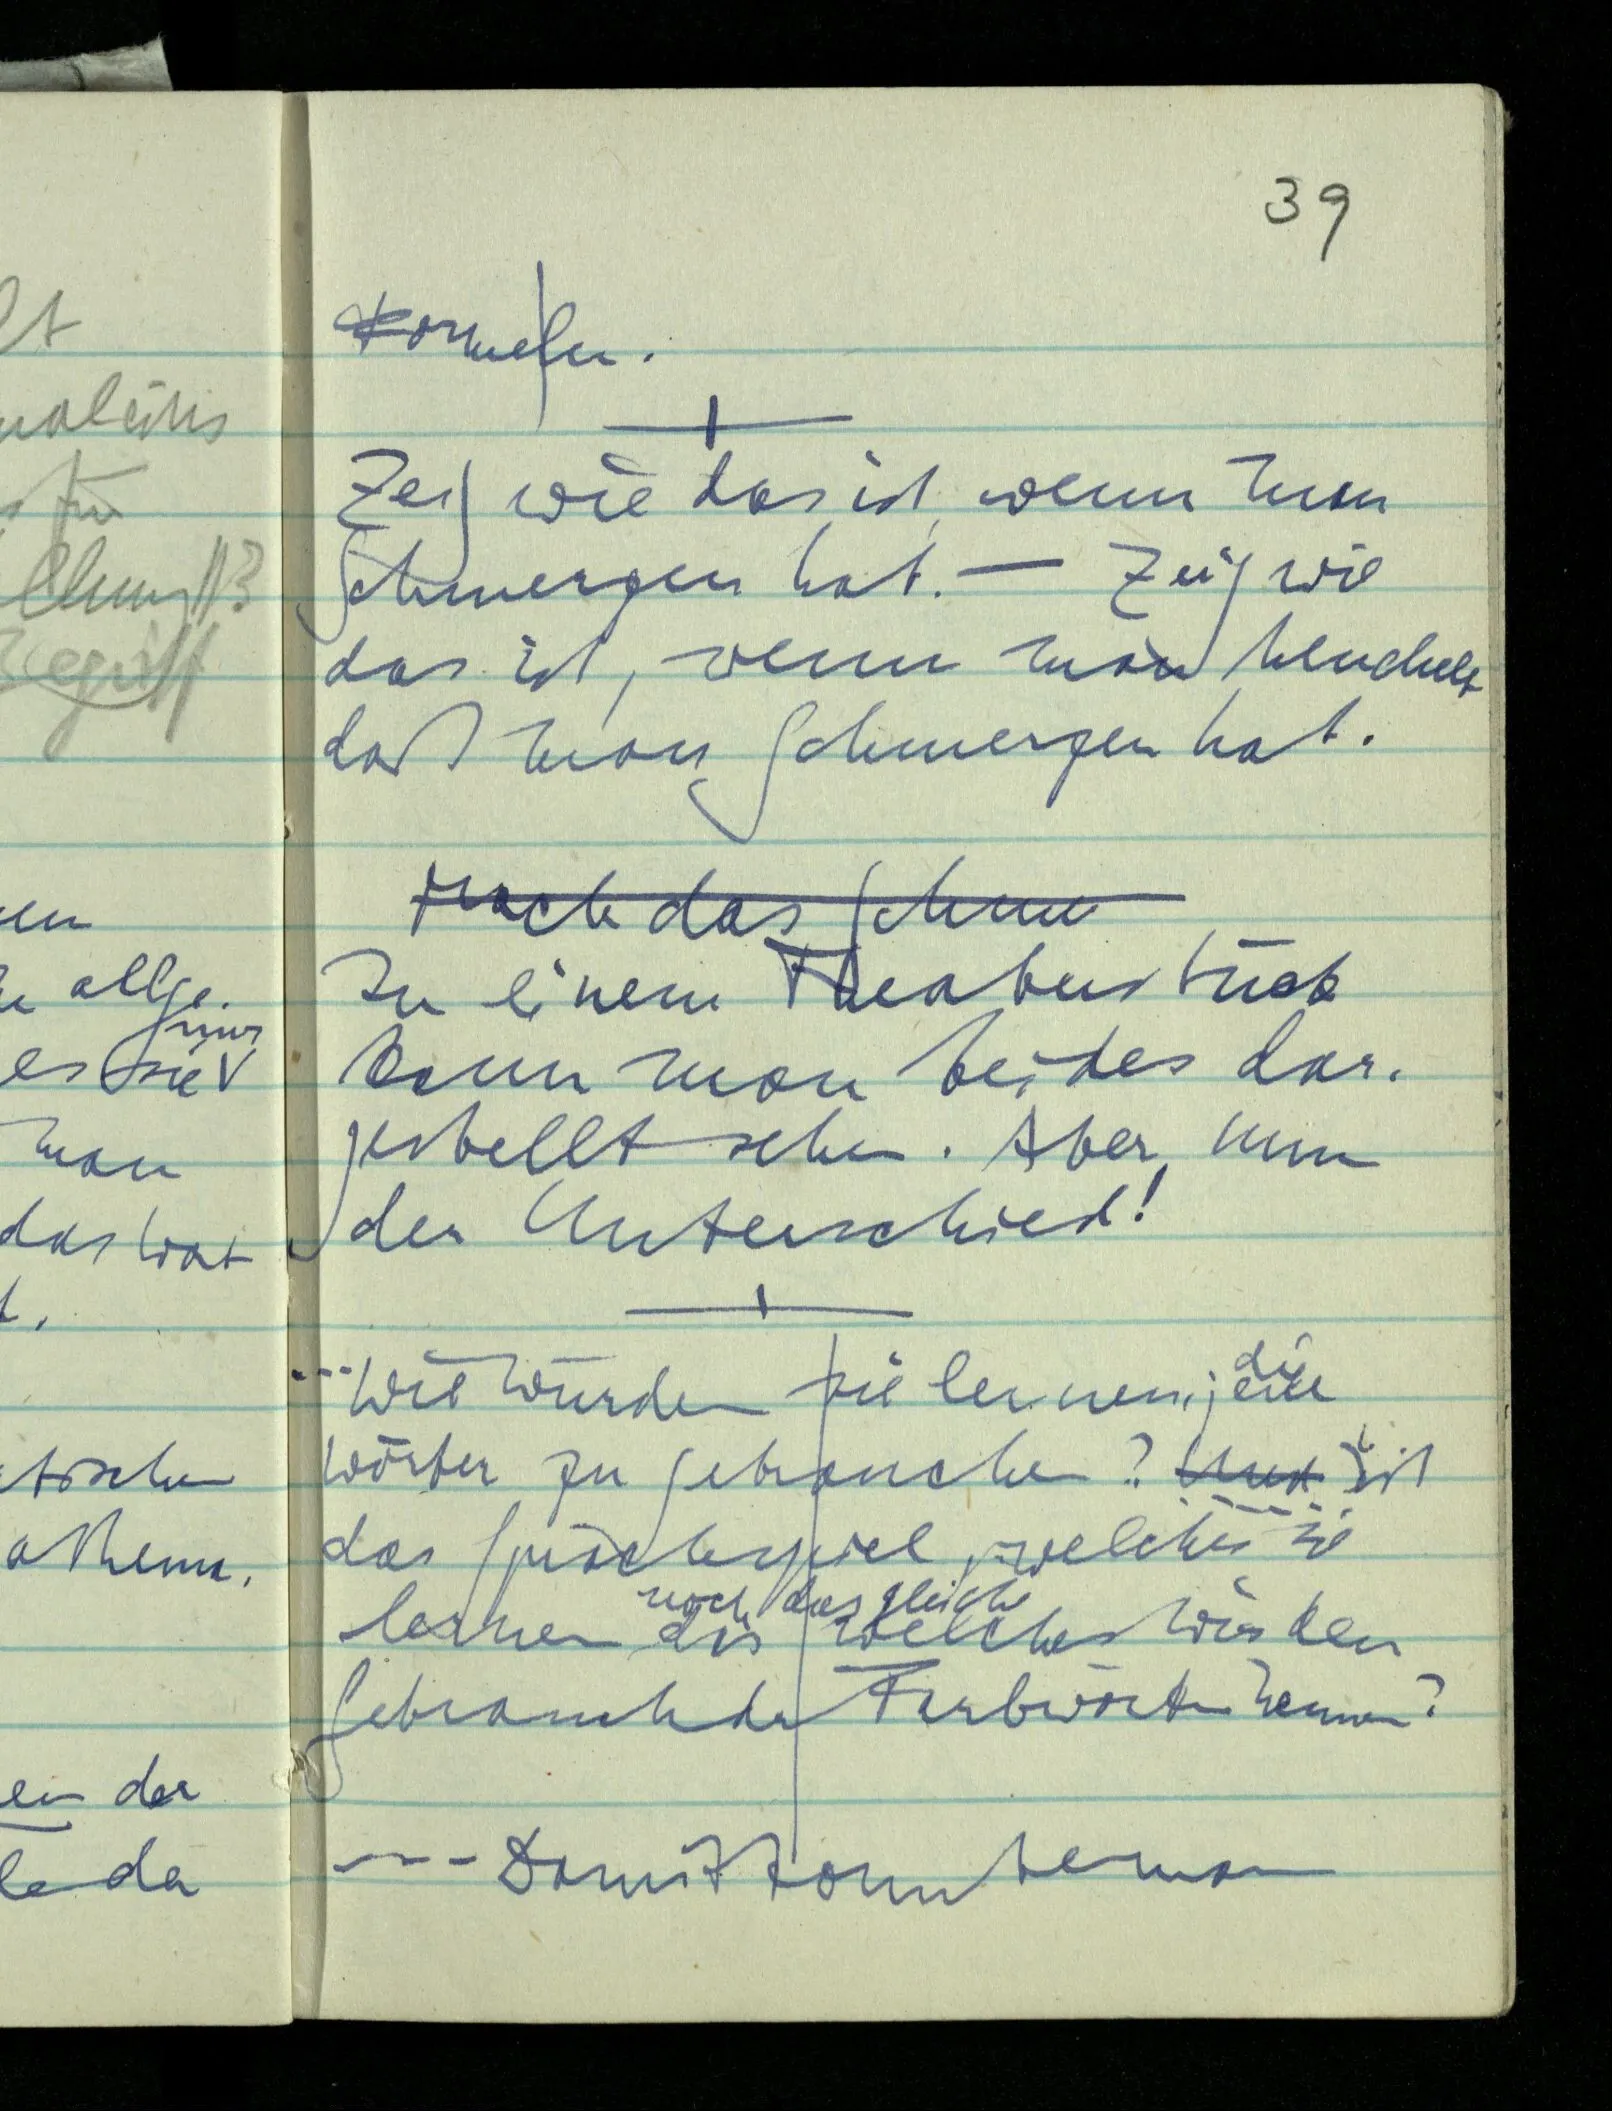 lt
39
Formeln.
Zeig wie das ist, wenn man
Schmerzen hat. — Zeig wie
das ist, wenn man heuchelt
daß man Schmerzen hat.
Mach das Schm
In einem Theaterstück
kann man beides dar-
gestellt sehen. Aber nun
der Unterschied!
--- Wie würden sie lernen, die
Wörter zu gebrauchen? Und ist
das Sprachspiel, welches sie
noch das gleiche
lernen das welches wir den
Gebrauch der Farbwörter nennen?
--- Damit kann
für
Begriff
en
allge-
nur
es sie
man
das wat
t.
athema-
en der
le da